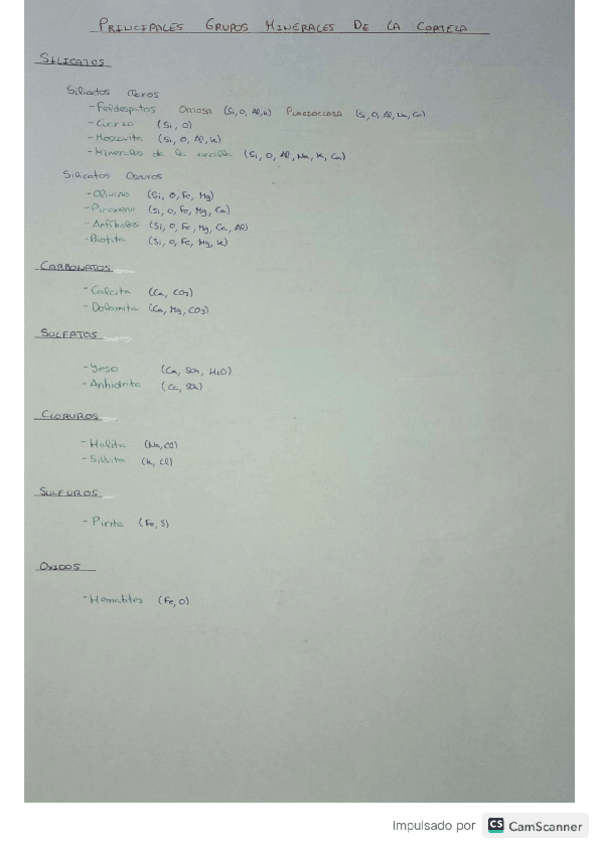 PRINCIPALES GRUPOS MINERALES DE LA CORTEZA
SILICATOS
Silicatos claros
- Feldespatos Ortosa (Si, O, Al, K) PLAGIOCLASA (Si, O, Al, Na, Ca)
- Cuarzo (Si, O)
- Moscovita (Si, O, Al, K)
- Minerales de la arcilla (Si, O, Al, Na, K, Ca)
Silicatos Oscuros
- Olivino (Si, O, Fe, Mg)
- Piroxeno (Si, O, Fe, Mg, Ca)
- Anfíboles (Si, O, Fe, Mg, Ca, Al)
- Biotita (Si, O, Fe, Mg, K)
CARBONATOS
- Calcita (Ca, CO3)
- Dolomita (Ca, Mg, CO3)
SULFATOS
- Yeso (Ca, SO4, H2O)
- Anhidrita (Ca, SO4)
CLORUROS
- Halita (Na, Cl)
- Silvita (K, Cl)
SULFUROS
- Pirita (Fe, S)
OXIDOS
- Hematites (Fe, O)
Impulsado por CS CamScanner